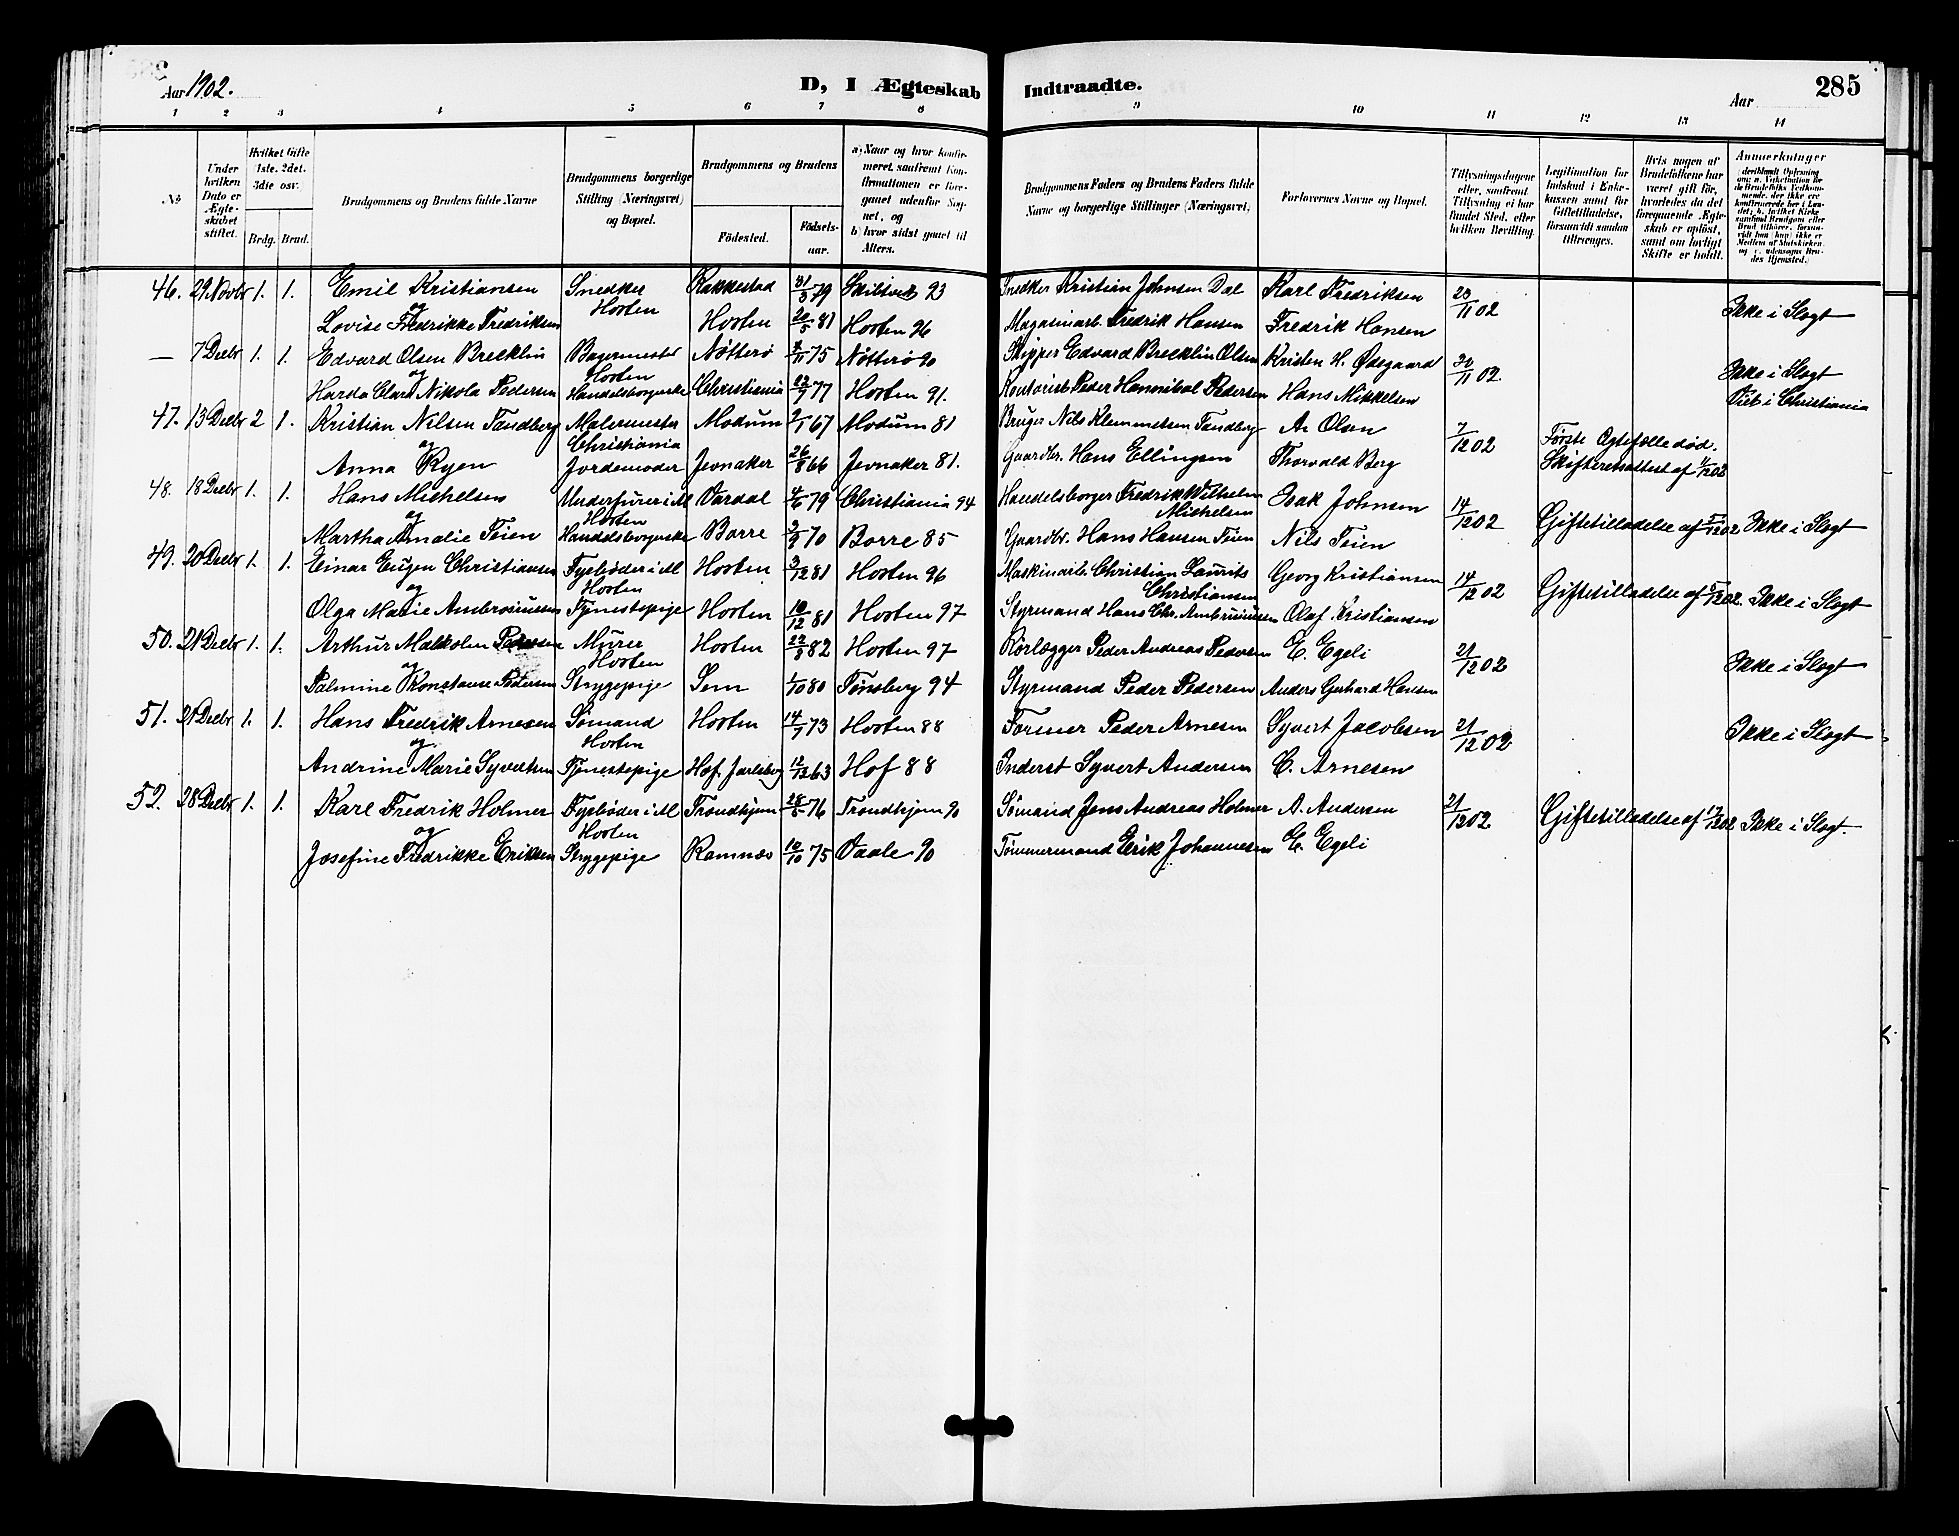 Aar 1902.
D, I Ægteskab Indtraadte.
Aar
285
1 2 3 4 5 6 7 8 9 10 11 12 13 14
No
Under hvilken Dato er Ægteskabet stiftet.
Hvilket Gifte 1ste. 2det. 3die osv.
Brdg. Brud.
Brudgommens og Brudens fulde Navne
Brudgommens borgerlige Stilling (Næringsvei) og Bopæl.
Brudgommens og Brudens
Födested. Födselsaar.
a) Naar og hvor konfirmeret, saafremt Konfirmationen er foregaaet udenfor Sognet, og b) hvor sidst gaaet til Alters.
Brudgommens Faders og Brudens Faders fulde Navne og borgerlige Stillinger (Næringsvei)
Forlovernes Navne og Bopæl.
Tillysningsdagene eller, saafremt Tillysning ei har fundet Sted, efter hvilken Bevilling.
Legitimation for Indskud i Enkekassen samt for Giftetilladelse, forsaavidt saadan tiltrænges.
Hvis nogen af Brudefolkene har været gift før, hvorledes da det foregaaende Ægteskab er oplöst, samt om lovligt Skifte er holdt.
Anmærkninger
46. 29 Novbr 1. 1. Emil Kristiansen Snedker Rakkestad 31/3 79 Skibtvet 93 Snedker Kristian Johnsen Dal Karl Fredriksen 23/11 02 Ikke i Slægt
og Horten
Lovise Fredrikke Fredriksen Horten 20/5 81 Horten 96 Magasinarb. Fredrik Hansen Fredrik Hansen
— 7 Decbr 1. 1. Edvard Olsen Brecklin Bagermester Nøtterø 75 Nøtterø 90 Skipper Edvard Brecklin Olsen Kristen H. Ødegaard 30/11 02. Ikke i Slægt
og Horten
Clara Nikola Pedersen Handelsborgerske Christiania 77 Horten 91. Kontorist Peder Hannibal Pedersen Hans Mikkelsen Viet i Christiania
47. 13 Decbr 2 1. Kristian Nilsen Tandberg Malermester Modum 67 Modum 81 Bruger Nils Klemmetsen Tandberg A. Olsen 7/12 02 Første Ægtefælle død.
og Christiania
Anna Ryen Jordemoder Jevnaker 26/8 66 Jevnaker 81. Gaardbr. Hans Ellingsen Thorvald Berg Skifteretsattest af 1/12 02
48. 18 Decbr 1. 1. Hans Michelsen Underfurer i M Vardal 4/6 79 Christiania 94 Handelsborger Fredrik Wilhelm Michelsen Isak Johnsen 14/12 02 Giftetilladelse af 12 02 Ikke i Slægt
og Horten
Martha Amalie Teien Handelsborgerske Borre 70 Borre 85 Gaardbr. Hans Hansen Teien Nils Teien
49. 20 Decbr 1. 1. Einar Eugen Christiansen Fyrbøder i M Horten 3/12 81 Horten 96 Maskinarb. Christian Laurits Christiansen Georg Kristiansen 14/12 02 Giftetilladelse af 12 02. Ikke i Slægt
og Horten
Olga Marie Ambrosiusen Tjenestepige Horten 10/12 81 Horten 97 Styrmand Hans Chr. Ambrosiusen Olaf Kristiansen
50. 21 Decbr 1. 1. Arthur Malkolm Pedersen Murer Horten 22/8 82 Horten 97 Rørlægger Peder Andreas Pedersen E. Egeli 21/12 02 Ikke i Slægt
og Horten
Palmine Konstanse Pedersen Strygepige Sem 1/10 80 Tønsberg 94 Styrmand Peder Pedersen Anders Gerhard Hansen
51. 21 Decbr 1. 1. Hans Fredrik Arnesen Sømand Horten 14/7 73 Horten 88 Former Peder Arnesen Syvert Jacobsen 21/12 02 Ikke i Slægt
og Horten
Andrine Marie Syvertsen Tjenestepige Hof. Jarlsberg 12/12 63 Hof 88 Inderst Syvert Andersen C. Arnesen
52. 28 Decbr 1. 1. Karl Fredrik Holmer Fyrbøder i M Trondhjem 76 Trondhjem 90 Sømand Jens Andreas Holmer A. Andersen 21/12 02 Giftetilladelse af 12 02 Ikke i Slægt.
og Horten
Josefine Fredrikke Eriksen Strygepige Ramnæs 10/10 75 Vaale 90 Tømmermand Erik Johannesen E. Egeli